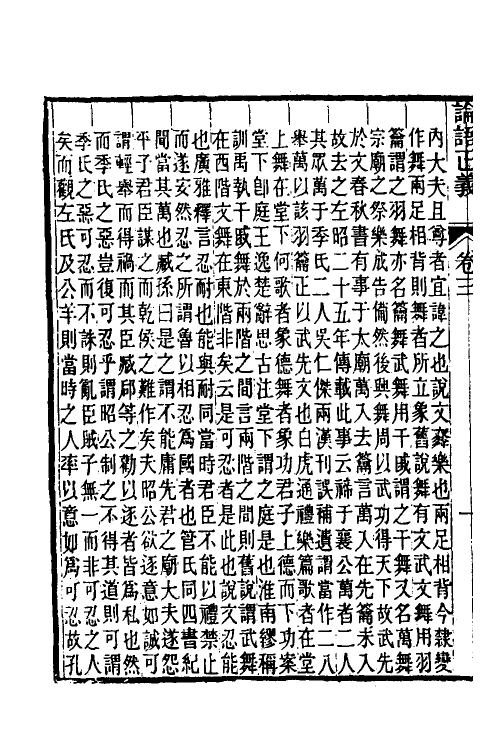 論語正義
卷三
一
內大夫且尊者宜諱之也說文舞樂也兩足相背今隸變
作舞兩足相背則舞者所立象舊說舞有文武文舞用羽
籥謂之羽舞亦名籥舞武舞用干戚謂之干舞又名萬舞
宗廟之祭樂成告備然後興舞周以武功得天下故武先
於文春秋書有事于太廟萬入去籥言萬入在先籥未入
故去之左昭二十五年傳載此事云禘于襄公萬者二人
其眾萬于季氏二人吳仁傑兩漢刊誤補遺謂當作二八
舉萬以該羽籥正以武先文也白虎通禮樂篇歌者在堂
上舞在堂下何歌者象德舞者象功君子上德而下功案
堂下卽庭王逸楚辭思古注堂下謂之庭是也淮南繆稱
訓禹執干戚舞於兩階之間言兩階之間則舊說謂武舞
在西階文舞在東階非矣云是可忍者是此也說文忍能
也廣雅釋言忍耐也能與耐同當時君臣不能以禮禁止
而遂安然忍之所謂魯以相忍為國者也管氏同四書紀
聞當其萬也臧孫曰是之謂不能庸先君之廟大夫遂怨
平子君臣謀之而乾侯之難作矣夫昭公欲逐意如誠可
謂輕舉而得禍而其臣臧郈等之勸以逐者皆為私也然
而季氏之惡豈復可忍乎謂昭公制之不得其道則可謂
季氏之惡可忍而不誅則亂臣賊子無一而非可忍之人
矣而觀左氏及公羊則當時之人率以意如為可忍故孔